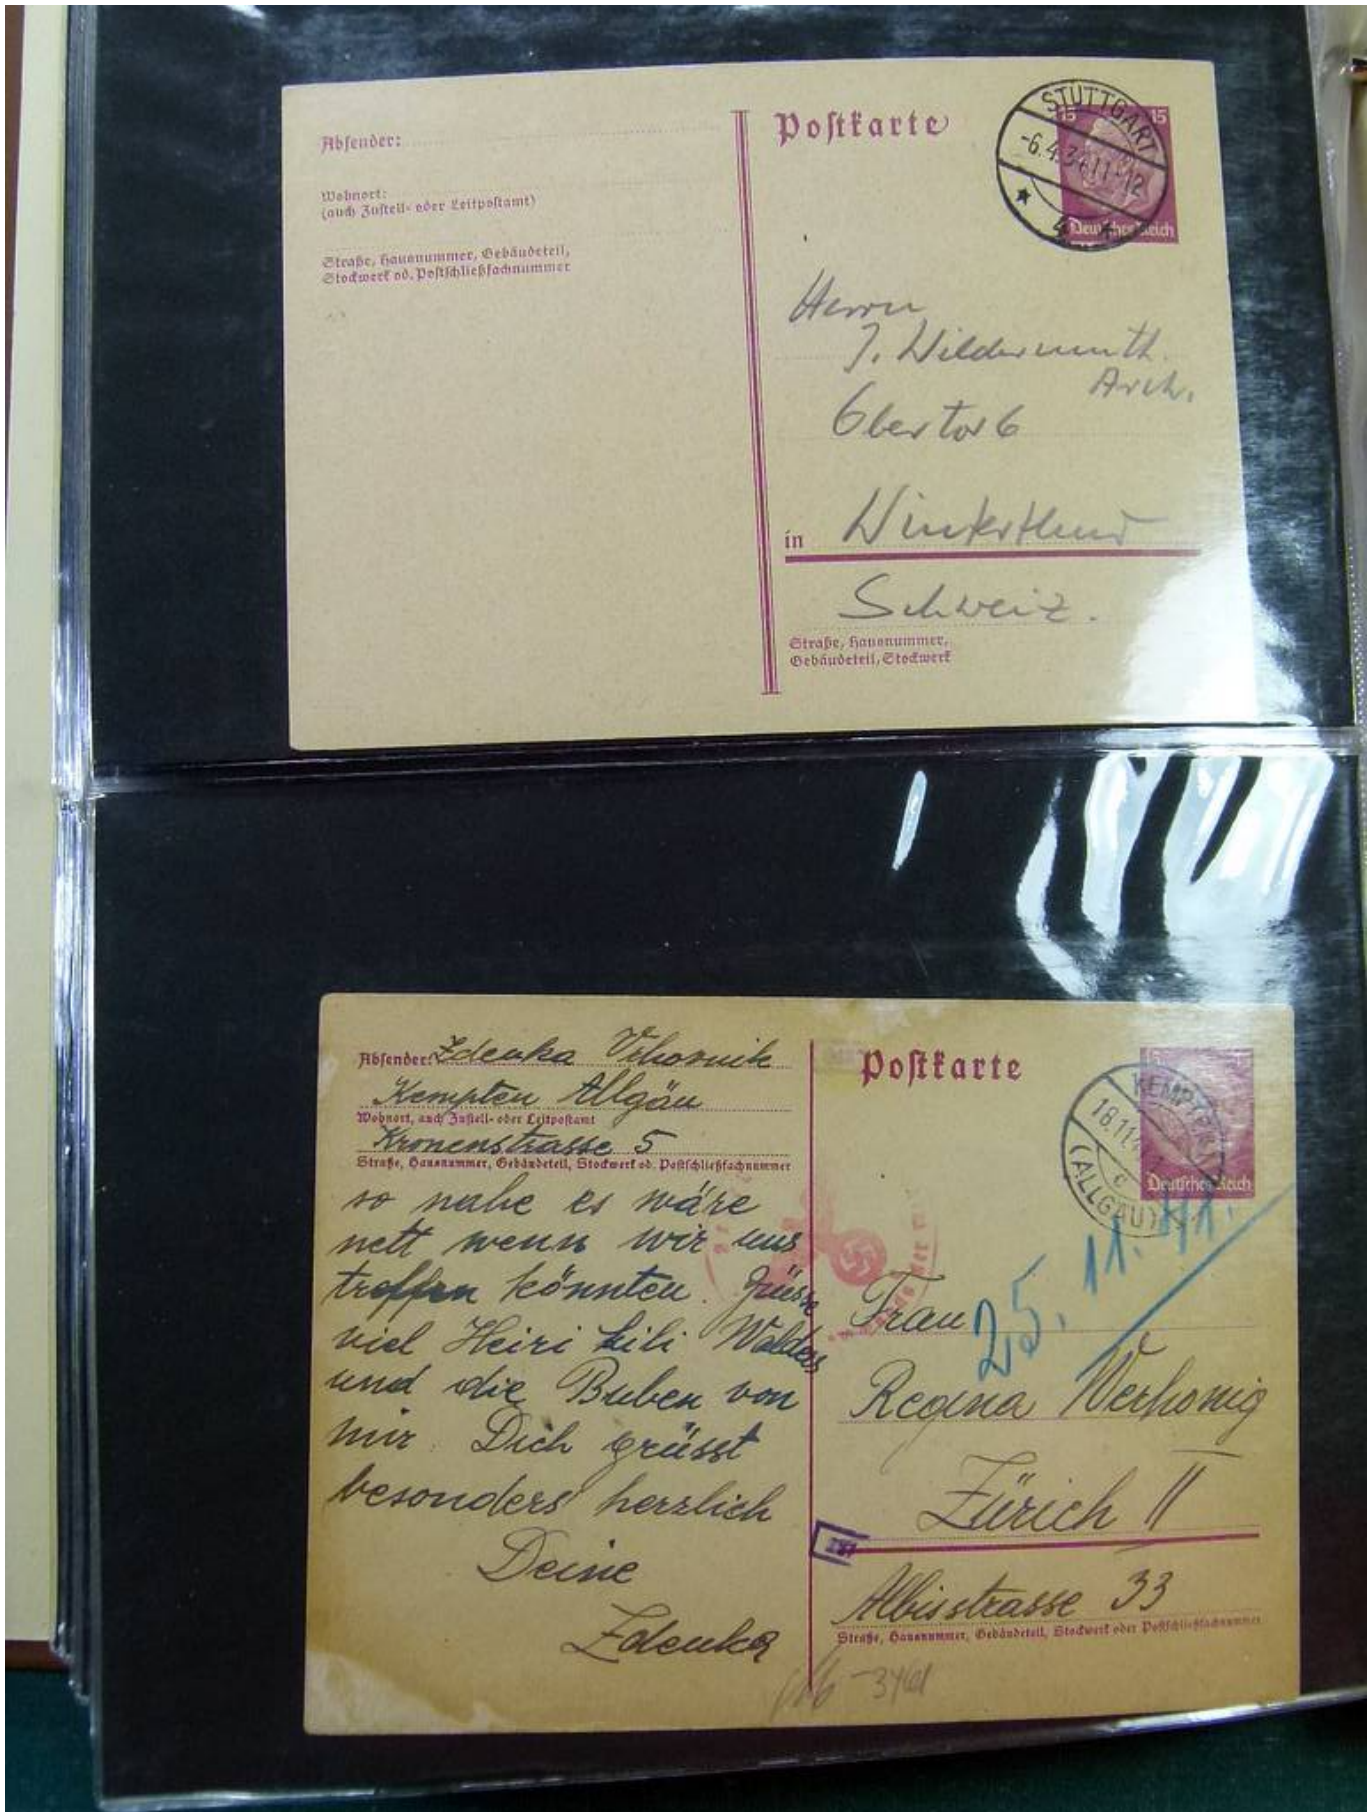 Absender:
Wohnort:
(auch Zustell- oder Leitpostamt)
Straße, Hausnummer, Gebäudeteil,
Stockwerk od. Postschließfachnummer
Postkarte
STUTTGART
-6.4.34 11-12
15 15
Deutsches Reich
Herrn
J. Wildermuth
Arch.
Obertor 6
in Winterthur
Schweiz.
Straße, Hausnummer,
Gebäudeteil, Stockwerk
Absender: Zdenka Vrhovnik
Kempten Allgäu
Wohnort, auch Zustell- oder Leitpostamt
Kronenstrasse 5
Straße, Hausnummer, Gebäudeteil, Stockwerk od. Postschließfachnummer
so nahe es wäre
nett wenn wir uns
treffen könnten. Grüsse
viel Heiri Lili Walders
und die Buben von
mir. Dich grüsst
besonders herzlich
Deine
Zdenka
Postkarte
KEMPTEN
18.11.4
c
(ALLGÄU)
Deutsches Reich
25. 11. 41.
Frau
Regina Werhonig
Zürich II
Albisstrasse 33
Straße, Hausnummer, Gebäudeteil, Stockwerk oder Postschließfachnummer